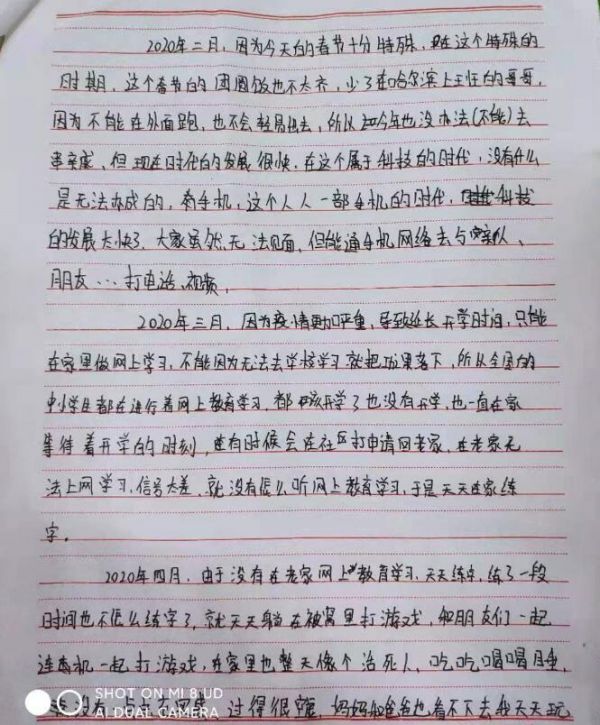 2020年二月，因为今天的春节十分特殊，在这个特殊的
时期，这个春节的团圆饭也不太齐，少了在哈尔滨上班的哥哥，
因为不能在外面跑，也不会轻易出去，所以今年也没办法(不能)去
串亲戚，但现在时代的发展很快，在这个属于科技的时代，没有什么
是无法办成的，靠手机，这个人人一部手机的时代，科技
的发展太快了，大家虽然无法见面，但能通手机网络去与亲人、
朋友…打电话、视频。
2020年三月，因为疫情更加严重，导致延长开学时间，只能
在家里做网上学习，不能因为无法去学校学习就把功课落下，所以全国的
中小学生都在进行着网上教育学习，都该开学了也没有开学，也一直在家
等待着开学的时刻，还有时候会在社区打申请回老家，在老家无
法上网学习，信号太差，就没有怎么听网上教育学习，于是天天在家练
字。
2020年四月，由于没有在老家网上教育学习，天天练字，练了一段
时间也不怎么练字了，就天天躺在被窝里打游戏，和朋友们一起
连麦机一起打游戏，在家里也整天像个活死人，吃吃喝喝睡睡，
没有 过得很 妈妈和爸爸也看不下去我天天玩
SHOT ON MI 8 UD
AI DUAL CAMERA